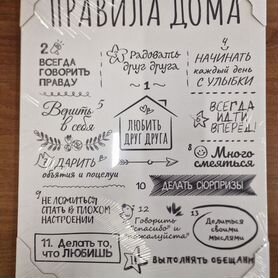 ПРАВИЛА ДОМА
2
ВСЕГДА
ГОВОРИТЬ
ПРАВДУ
Радовать
друг друга
1
4
НАЧИНАТЬ
каждый день
С УЛЫБКИ
5
Верить
в себя
ЛЮБИТЬ
ДРУГ ДРУГА
ВСЕГДА
ИДТИ
ВПЕРЁД!
ДАРИТЬ
объятия и поцелуи
8
Много
смеяться
10
ДЕЛАТЬ СЮРПРИЗЫ
9
НЕ ЛОЖИТЬСЯ
СПАТЬ В ПЛОХОМ
НАСТРОЕНИИ
12
Говорить
"спасибо" и
"пожалуйста"
13
Делиться
своими
мыслями
11. Делать то,
что ЛЮБИШЬ
ВЫПОЛНЯТЬ ОБЕЩАНИ